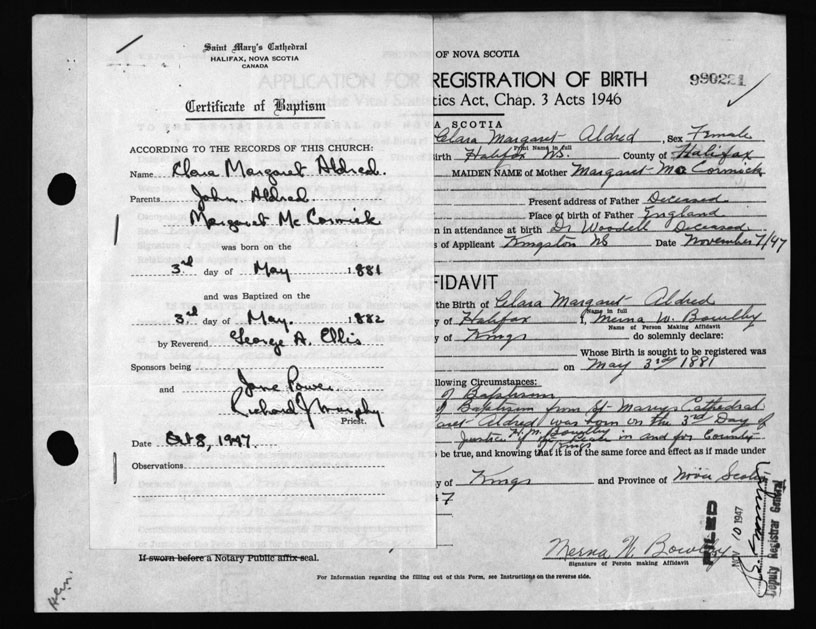 Saint Mary's Cathedral
HALIFAX, NOVA SCOTIA
CANADA
Certificate of Baptism
ACCORDING TO THE RECORDS OF THIS CHURCH:
Name Clara Margaret Aldred.
Parents John Aldred.
Margaret McCormick
was born on the
3rd day of May 1881
and was Baptized on the
3rd day of May. 1882
by Reverend George A. Ellis
Sponsors being
Jane Power
and
Richard J Murphy
Priest.
Date Oct 8, 1947.
Observations
OF NOVA SCOTIA
APPLICATION FOR REGISTRATION OF BIRTH
990221
tics Act, Chap. 3 Acts 1946
A SCOTIA
Clara Margaret Aldred, Sex Female
Print Name in full
Birth Halifax NS. County of Halifax
MAIDEN NAME of Mother Margaret McCormick
Present address of Father Deceased
Place of birth of Father England
n in attendance at birth Dr Woodell Deceased
s of Applicant Kingston NS Date November 7/47
FIDAVIT
the Birth of Clara Margaret Aldred
Name in full
y of Halifax I, Merna W. Bowlby
Name of Person Making Affidavit
y of Kings do solemnly declare:
Whose Birth is sought to be registered was
on May 3rd 1881
llowing Circumstances:
of Baptism
of Baptism from St Marys Cathedral
aret Aldred was born on the 3rd Day of
Justice of the Peace in and for County
of Kings
o be true, and knowing that it is of the same force and effect as if made under
y of Kings and Province of Nova Scotia
47
FILED
NOV 10 1947
Deputy Registrar General
Merna W. Bowlby
Signature of Person making Affidavit
If sworn before a Notary Public affix seal.
For Information regarding the filling out of this Form, see Instructions on the reverse side.